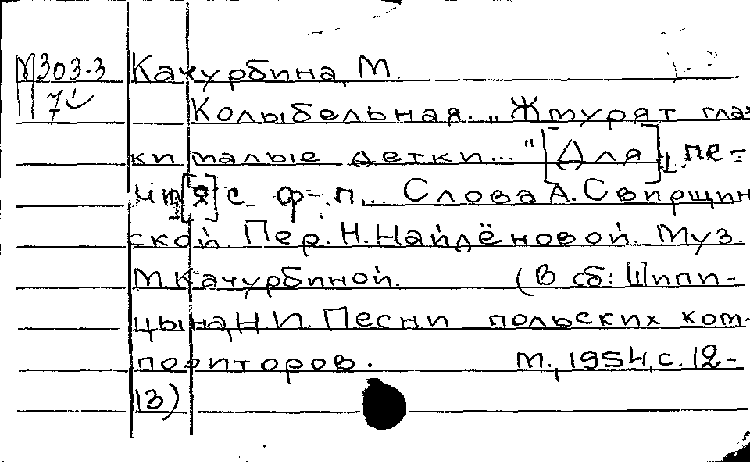 М303-3 Качурбина, М.
7 Колыбельная. „Жмурят глаз-
ки малые детки..." [Для] пе-
ния[я] с ф-п. Слова А. Свирщин
ской. Пер. Н. Найдёновой. Муз.
М. Качурбиной. (В сб: Шипи-
цына, Н.И. Песни польских ком-
позиторов. М., 1954, с. 12-
13)